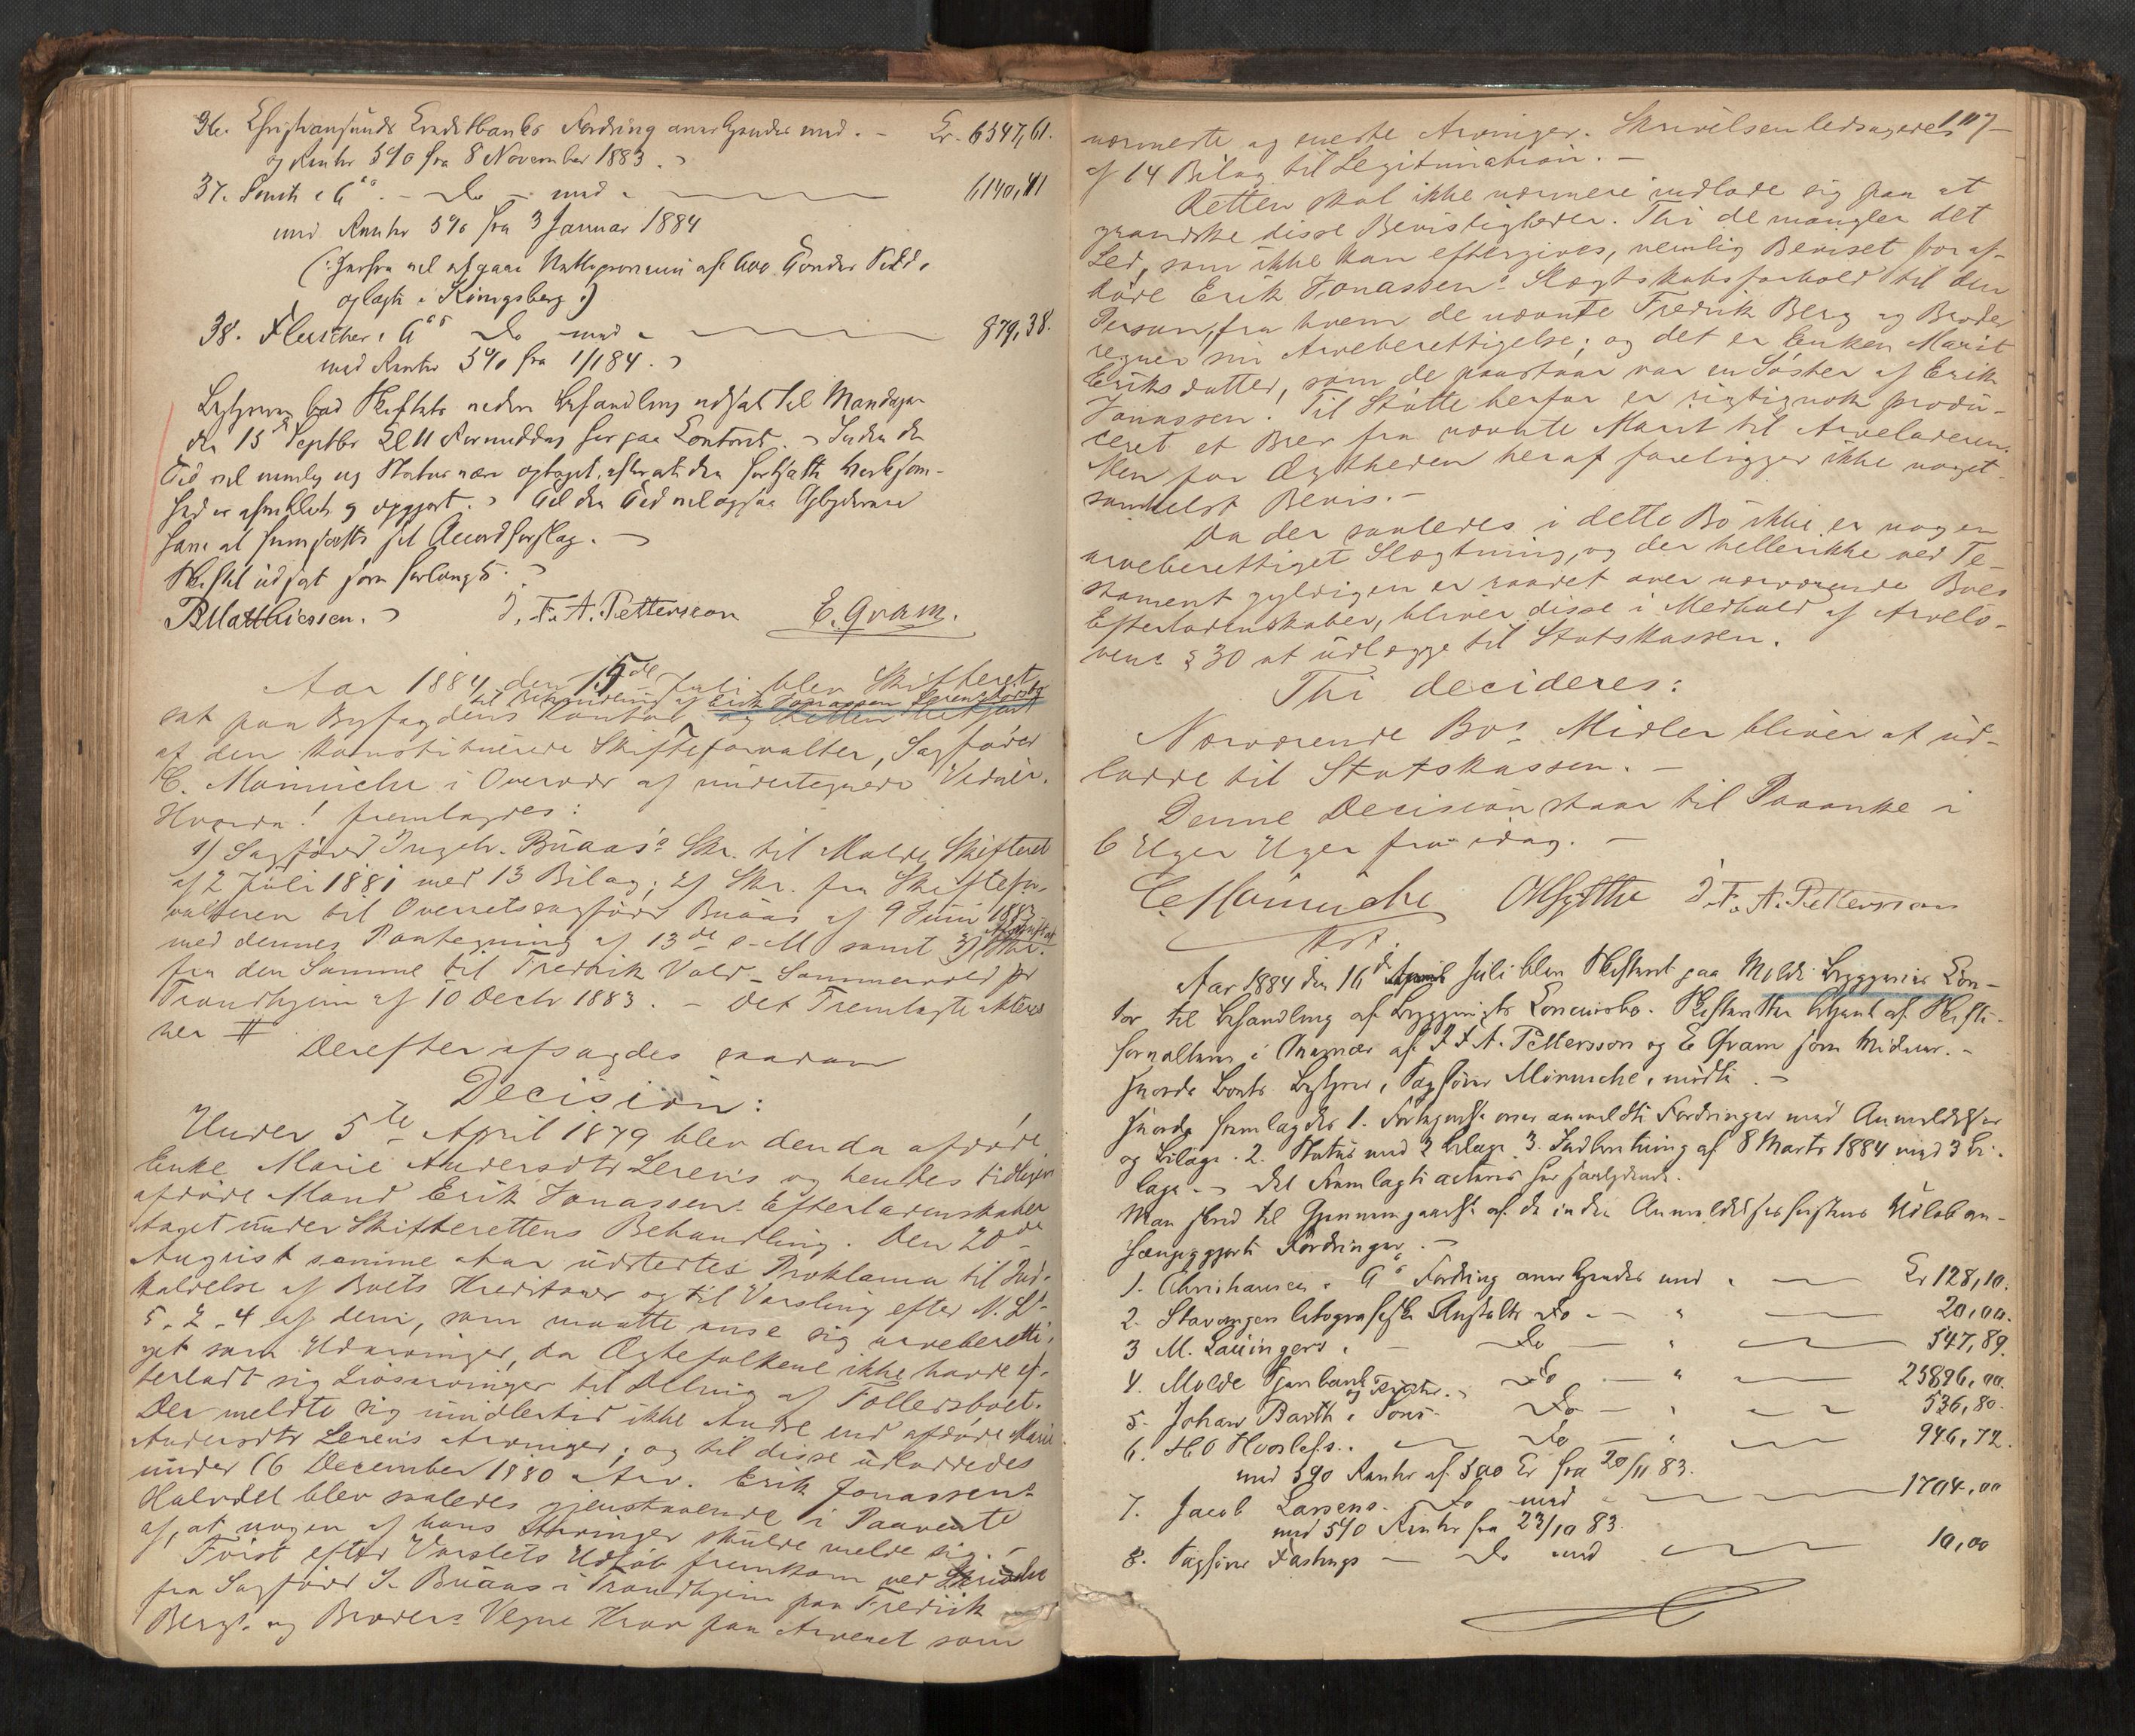 36. Christiansunds Creditbanks Fordring anerkjendes med. – Kr. 6347,61.
og Renter 5% fra 8 November 1883.
37. Smith & Co. – Do – med – 6140,41
med Renter 5% fra 3 Januar 1884
(: herfra vil afgaae Nettoprovenu af 600 Tønder Sild,
oplagt i Königsberg :)
38. Fleischer & Co Do med – 879,38.
med Renter 5% fra 1/1 84.
Bestyreren bad Skiftets videre Behandling udsat til Mandagen
den 15de Septbr Kl 11 Formiddag her paa Contoret. – Inden den
Tid vil nemlig ny Status være optaget, efterat den fortsatte Virksom-
hed er afsluttet og opgjort. Til den Tid vil ogsaa Opbyderne
have at fremsætte sit Accordforslag. –
Skiftet udsat som forlangt.
P Matthiessen. J. F. A. Pettersson E. Gram.
Aar 1884 den 15de Juli blev Skifteret
til Behandling af Erik Jonassen Lerens Dødsbo
sat paa Byfogdens Kontor og Retten betjent
af den konstituerede Skifteforvalter, Sagfører
C. Mönniche i Overvær af undertegnede Vidner.
Hvorda! fremlagdes:
1) Sagfører Ingebr. Buaas's Skr. til Molde Skifteret
af 2 Juli 1881 med 13 Bilag; 2) Skr. fra Skiftefor-
valteren til Overretssagfører Buaas af 9 Juni 1883
med dennes Paategning af 13de s. M samt 3) Afskrift af Skr.
fra den Samme til Fredrik Vald. Sommervold pr
Trondhjem af 10 Decbr 1883. – Det Fremlagte akteres
her #
Derefter afsagdes saadan
Decision:
Under 5te April 1879 blev den da afdøde
Enke Marie Andersdtr Lerens og hendes tidligere
afdøde Mand Erik Jonassens Efterladenskaber
taget under Skifterettens Behandling. Den 20de
August samme Aar udstedtes Proklama til Ind-
kaldelse af Boets Kreditorer og til Varsling efter N. L's
5-2-4 af dem, som maatte anse sig arveberetti-
get som Udarvinger, da Ægtefolkene ikke havde ef-
terladt sig Livsarvinger til Deling af Fællesboet.
Der meldte sig imidlertid ikke Andre end afdøde Marie
Andersdtr Lerens Arvinger; og til disse udloddedes
under 16 December 1880 Arv. Erik Jonassens
Halvdel blev saaledes gjenstaaende i Paavente
af, at nogen af hans Arvinger skulde melde sig. –
Først efter Varslets Udløb fremkom ved Skrivelse
fra Sagfører I. Buaas i Trondhjem paa Fredrik
Bergs og Broders Vegne Krav paa Arven som
107
nærmeste og eneste Arvinger. Skrivelsen ledsagedes
af 14 Bilag til Legitimation. –
Retten skal ikke nærmere indlade sig paa at
granske disse Bevisligheder. Thi de mangler det
Led, som ikke kan eftergives, nemlig Beviset for af-
døde Erik Jonassens Slægtskabsforhold til den
Person, fra hvem de nævnte Fredrik Berg og Broder
regner sin Arveberettigelse; og det er Enken Marit
Eriksdatter, som de paastaar var en Søster af Erik
Jonassen. Til Støtte herfor er rigtignok produ-
ceret et Brev fra nævnte Marit til Arveladeren.
Men for Ægtheden heraf foreligger ikke noget-
somhelst Bevis. –
Da der saaledes i dette Bo ikke er nogen
arveberettiget Slægtning, og der hellerikke ved Te-
stament gyldigen er raadet over nærværende Boes
Efterladenskaber, bliver disse i Medhold af Arvelo-
vens § 30 at udlægge til Statskassen.
Thi decideres:
Nærværende Bos Midler bliver at ud-
lodde til Statskassen. –
Denne Decision staar til Paaanke i
6 Uger Uger fra idag. –
C. Mönniche J. F. A. Pettersson
Aar 1884 den 16de April Juli blev Skifteret paa Molde Bryggeries Con-
tor til Behandling af Bryggeriets Concursbo. Skifteretten betjent af Skifte-
forvalteren i Overvær af J F A. Pettersson og E Gram som Vidner. –
Hvorda Boets Bestyrer, Sagfører Mönniche, mødte. –
Hvorda fremlagdes 1. Fortegnelse over anmeldte Fordringer med Anmeldelser
og Bilage. 2. Status med 2 Bilage. 3. Indberetning af 8 Marts 1884 med 3 Bi-
lage. – Det Fremlagte acteres her saalydende.
Man skred til Gjennemgaaelse af de inden Anmeldelsesfristens Udløb an-
hængiggjorte Fordringer. –
1. Christiansen & Co Fordring anerkjendes med – Kr 128,10.
2. Stavanger litografiske Anstalts Do – 20,00.
3 M. Lauingers – Do – 547,89.
4. Molde Sparebanks og Renter. Do – 25896,00.
5. Johan Barth & Sons – Do – 536,80.
6. H. O Hvoslefs – Do – 946,72.
med 5% Renter af 500 Kr fra 20/11 83.
7. Jacob Larsens – Do med – 1704,00
med 5% Renter fra 23/10 83.
8. Sagfører Fastings – Do med – 10,00